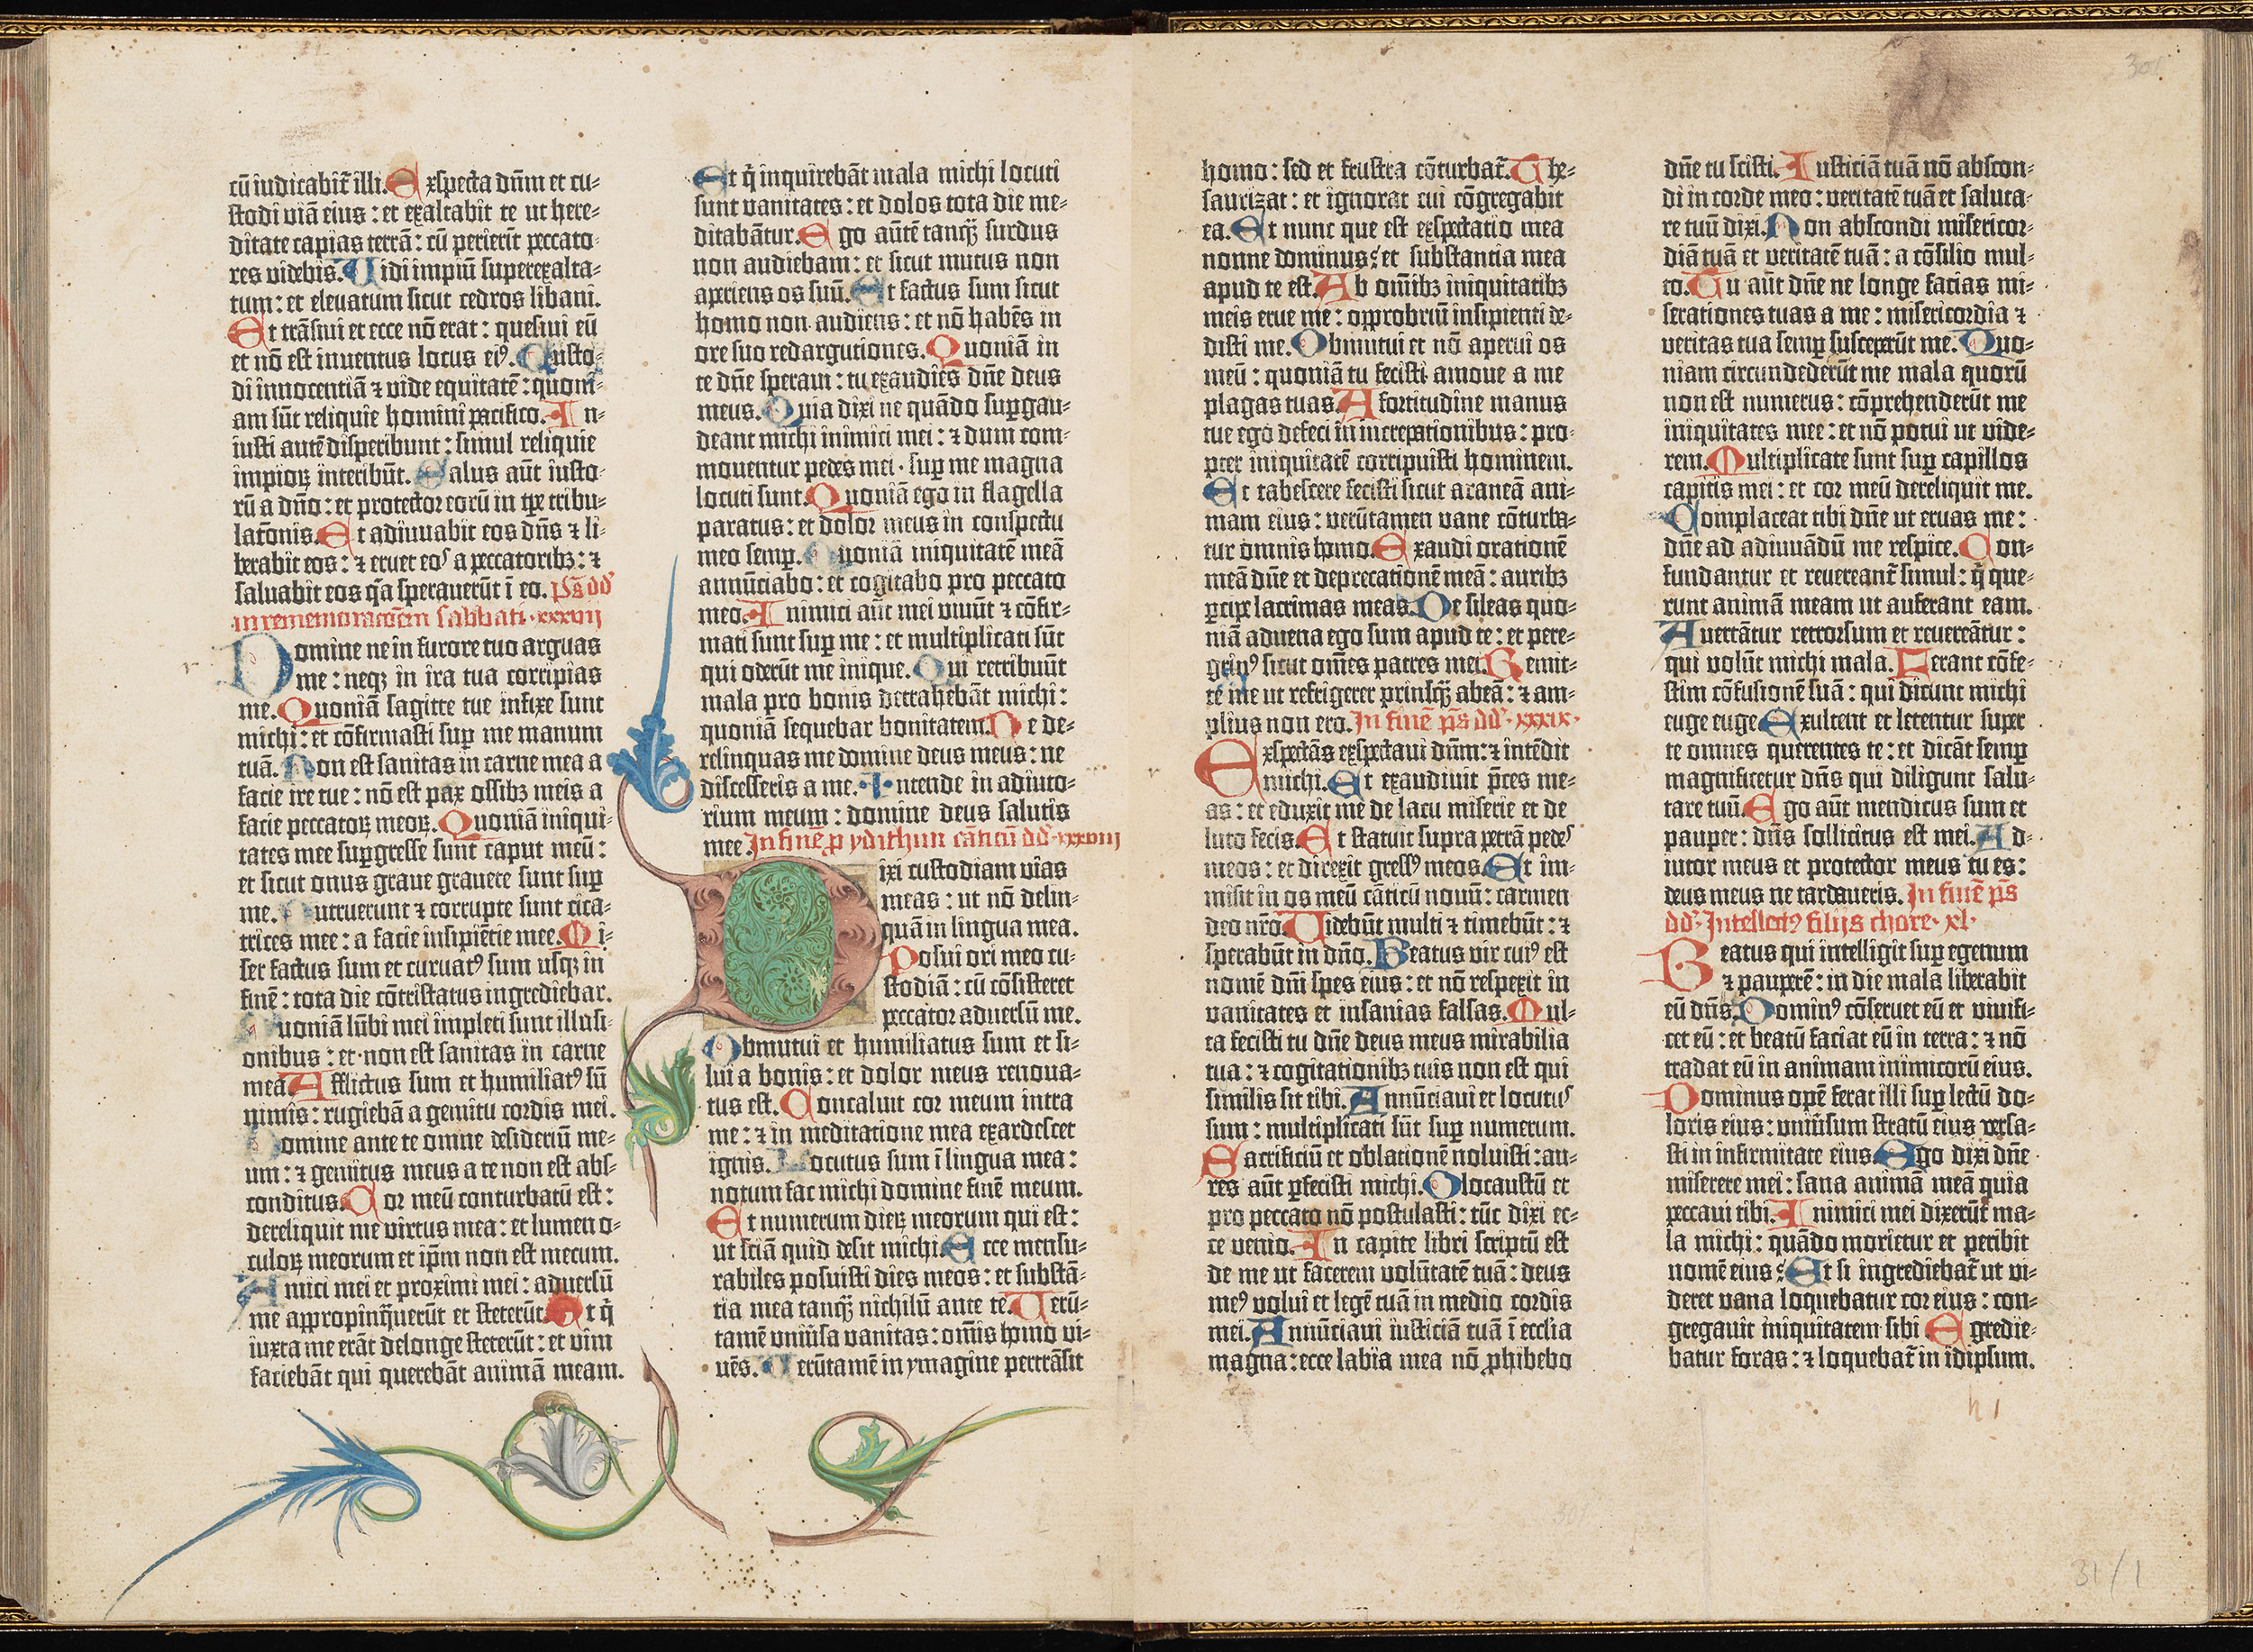 cū iudicabit̄ illi. Exspecta dn̄m et cu-
stodi viā eius : et exaltabit te ut here-
ditate capias terrā : cū perierīt peccato-
res videbis. Vidi impiū superexalta-
tum : et eleuatum sicut cedros libani.
Et trāsiui et ecce nō erat : quesiui eū
et nō est inuentus locus eiꝰ. Custo-
di innocentiā ⁊ vide equitatē : quoni-
am sūt reliquie homini pacifico. In-
iusti autē disperibunt : simul reliquie
impioꝝ interibūt. Salus aūt iusto-
rū a dn̄o : et protector eorū in tp̄e tribu-
lat̄onis. Et adiuuabit eos dn̄s ⁊ li-
berabit eos : ⁊ eruet eos a peccatoribꝫ : ⁊
saluabit eos q̄a sperauerūt ī eo. ps̄ dd̄
in rememoracōem sabbati · xxxvii
Domine ne in furore tuo arguas
me : neqꝫ in ira tua corripias
me. Quoniā sagitte tue infixe sunt
michi : et cōfirmasti sup̄ me manum
tuā. Non est sanitas in carne mea a
facie ire tue : nō est pax ossibꝫ meis a
facie peccatoꝝ meoꝝ. Quoniā iniqui-
tates mee sup̄gresse sunt caput meū :
et sicut onus graue grauate sunt sup̄
me. Putruerunt ⁊ corrupte sunt cica-
trices mee : a facie insipiētie mee. Mi-
ser factus sum et curuatꝰ sum usqꝫ in
finē : tota die cōtristatus ingrediebar.
Quoniā lūbi mei impleti sunt illusi-
onibus : et non est sanitas in carne
mea. Afflictus sum et humiliatꝰ sū
nimis : rugiebā a gemitu cordis mei.
Domine ante te omne desideriū me-
um : ⁊ gemitus meus a te non est abs-
conditus. Cor meū conturbatū est :
dereliquit me virtus mea : et lumen o-
culoꝝ meorum et ip̄m non est mecum.
Amici mei et proximi mei : aduersū
me appropinq̄uerūt et steterūt. Et q̄
iuxta me erāt de longe steterūt : et vim
faciebāt qui querebāt animā meam.
Et q̄ inquirebāt mala michi locuti
sunt vanitates : et dolos tota die me-
ditabātur. Ego aūtē tanqꝫ surdus
non audiebam : et sicut mutus non
aperiens os suū. Et factus sum sicut
homo non audiens : et nō habēs in
ore suo redargutiones. Quoniā in
te dn̄e speraui : tu exaudies dn̄e deus
meus. Quia dixi ne quādo sup̄gau-
deant michi inimici mei : ⁊ dum com-
mouentur pedes mei · sup̄ me magna
locuti sunt. Quoniā ego in flagella
paratus : et dolor meus in conspectu
meo semp̄. Quoniā iniquitatē meā
annūciabo : et cogitabo pro peccato
meo. Inimici aūt mei viuūt ⁊ cōfir-
mati sunt sup̄ me : et multiplicati sūt
qui oderūt me inique. Qui retribuūt
mala pro bonis detrahebāt michi :
quoniā sequebar bonitatem. Ne de-
relinquas me domine deus meus : ne
discesseris a me. Intende in adiuto-
rium meum : domine deus salutis
mee. In finē p̄ ydithun cāticū dd̄ · xxxviii
Dixi custodiam vias
meas : ut nō delin-
quā in lingua mea.
Posui ori meo cu-
stodiā : cū cōsisteret
peccator aduersū me.
Obmutui et humiliatus sum et si-
lui a bonis : et dolor meus renoua-
tus est. Concaluit cor meum intra
me : ⁊ in meditatione mea exardescet
ignis. Locutus sum ī lingua mea :
notum fac michi domine finē meum.
Et numerum dieꝝ meorum qui est :
ut sciā quid desit michi. Ecce mensu-
rabiles posuisti dies meos : et substā-
tia mea tanqꝫ nichilū ante te. Verū-
tamē vniūsa vanitas : om̄is homo vi-
uēs. Verūtamē in ymagine pertrāsit
homo : sed et frustra cōturbat̄. The-
saurizat : et ignorat cui cōgregabit
ea. Et nunc que est exspectatio mea
nonne dominus : et substantia mea
apud te est. Ab om̄ibꝫ iniquitatibꝫ
meis erue me : opprobriū insipienti de-
disti me. Obmutui et nō aperui os
meū : quoniā tu fecisti amoue a me
plagas tuas. A fortitudine manus
tue ego defeci in increpationibus : pro-
pter iniquitatē corripuisti hominem.
Et tabescere fecisti sicut araneā ani-
mam eius : verūtamen vane cōturba-
tur omnis homo. Exaudi orationē
meā dn̄e et deprecationē meā : auribꝫ
ꝑcipe lacrimas meas. Ne sileas quo-
niā aduena ego sum apud te : et pere-
grinꝰ sicut om̄es patres mei. Remit-
te me ut refrigerer priusqꝫ abeā : ⁊ am-
plius non ero. In finē ps̄ dd̄ · xxxix ·
Exspectās exspectaui dn̄m : ⁊ intēdit
michi. Et exaudiuit p̄ces me-
as : et eduxit me de lacu miserie et de
luto fecis. Et statuit supra petrā pedes
meos : et direxit gressꝰ meos. Et im-
misit in os meū cāticū nouū : carmen
deo nr̄o. Videbūt multi ⁊ timebūt : ⁊
sperabūt in dn̄o. Beatus vir cuiꝰ est
nomē dn̄i spes eius : et nō respexit in
vanitates et insanias falsas. Mul-
ta fecisti tu dn̄e deus meus mirabilia
tua : ⁊ cogitationibꝫ tuis non est qui
similis sit tibi. Annūciaui et locutus
sum : multiplicati sūt sup̄ numerum.
Sacrificiū et oblationē noluisti : au-
res aūt ꝑfecisti michi. Olocaustū et
pro peccato nō postulasti : tūc dixi ec-
ce venio. In capite libri scriptū est
de me ut facerem volūtatē tuā : deus
meꝰ volui et legē tuā in medio cordis
mei. Annūciaui iusticiā tuā ī ecclīa
magna : ecce labia mea nō ꝓhibebo
dn̄e tu scisti. Iusticiā tuā nō abscon-
di in corde meo : veritatē tuā et saluta-
re tuū dixi. Non abscondi misericor-
diā tuā et veritatē tuā : a cōsilio mul-
to. Tu aūt dn̄e ne longe facias mi-
serationes tuas a me : misericordia ⁊
veritas tua semp̄ susceperūt me. Quo-
niam circundederūt me mala quorū
non est numerus : cōprehenderūt me
iniquitates mee : et nō potui ut vide-
rem. Multiplicate sunt sup̄ capillos
capitis mei : et cor meū dereliquit me.
Complaceat tibi dn̄e ut eruas me :
dn̄e ad adiuuādū me respice. Con-
fundantur et reuereant̄ simul : q̄ que-
runt animā meam ut auferant eam.
Auertātur retrorsum et reuereātur :
qui volūt michi mala. Ferant cōfe-
stim cōfusionē suā : qui dicunt michi
euge euge. Exultent et letentur super
te omnes querentes te : et dicāt semp̄
magnificetur dn̄s qui diligunt salu-
tare tuū. Ego aūt mendicus sum et
pauper : dn̄s sollicitus est mei. Ad-
iutor meus et protector meus tu es :
deus meus ne tardaueris. In finē ps̄
dd̄ · Intellectꝰ filijs chore · xl ·
Beatus qui intelligit sup̄ egenum
⁊ pauperē : in die mala liberabit
eū dn̄s. Dominꝰ cōseruet eū et viuifi-
cet eū : et beatū faciat eū in terra : ⁊ nō
tradat eū in animam inimicorū eius.
Dominus opē ferat illi sup̄ lectū do-
loris eius : vniūsum stratū eius versa-
sti in infirmitate eius. Ego dixi dn̄e
miserere mei : sana animā meā quia
peccaui tibi. Inimici mei dixerūt ma-
la michi : quādo morietur et peribit
nomē eius : Et si ingrediebat̄ ut vi-
deret vana loquebatur cor eius : con-
gregauit iniquitatem sibi. Egredie-
batur foras : ⁊ loquebat̄ in idipsum.
h 1
31/1